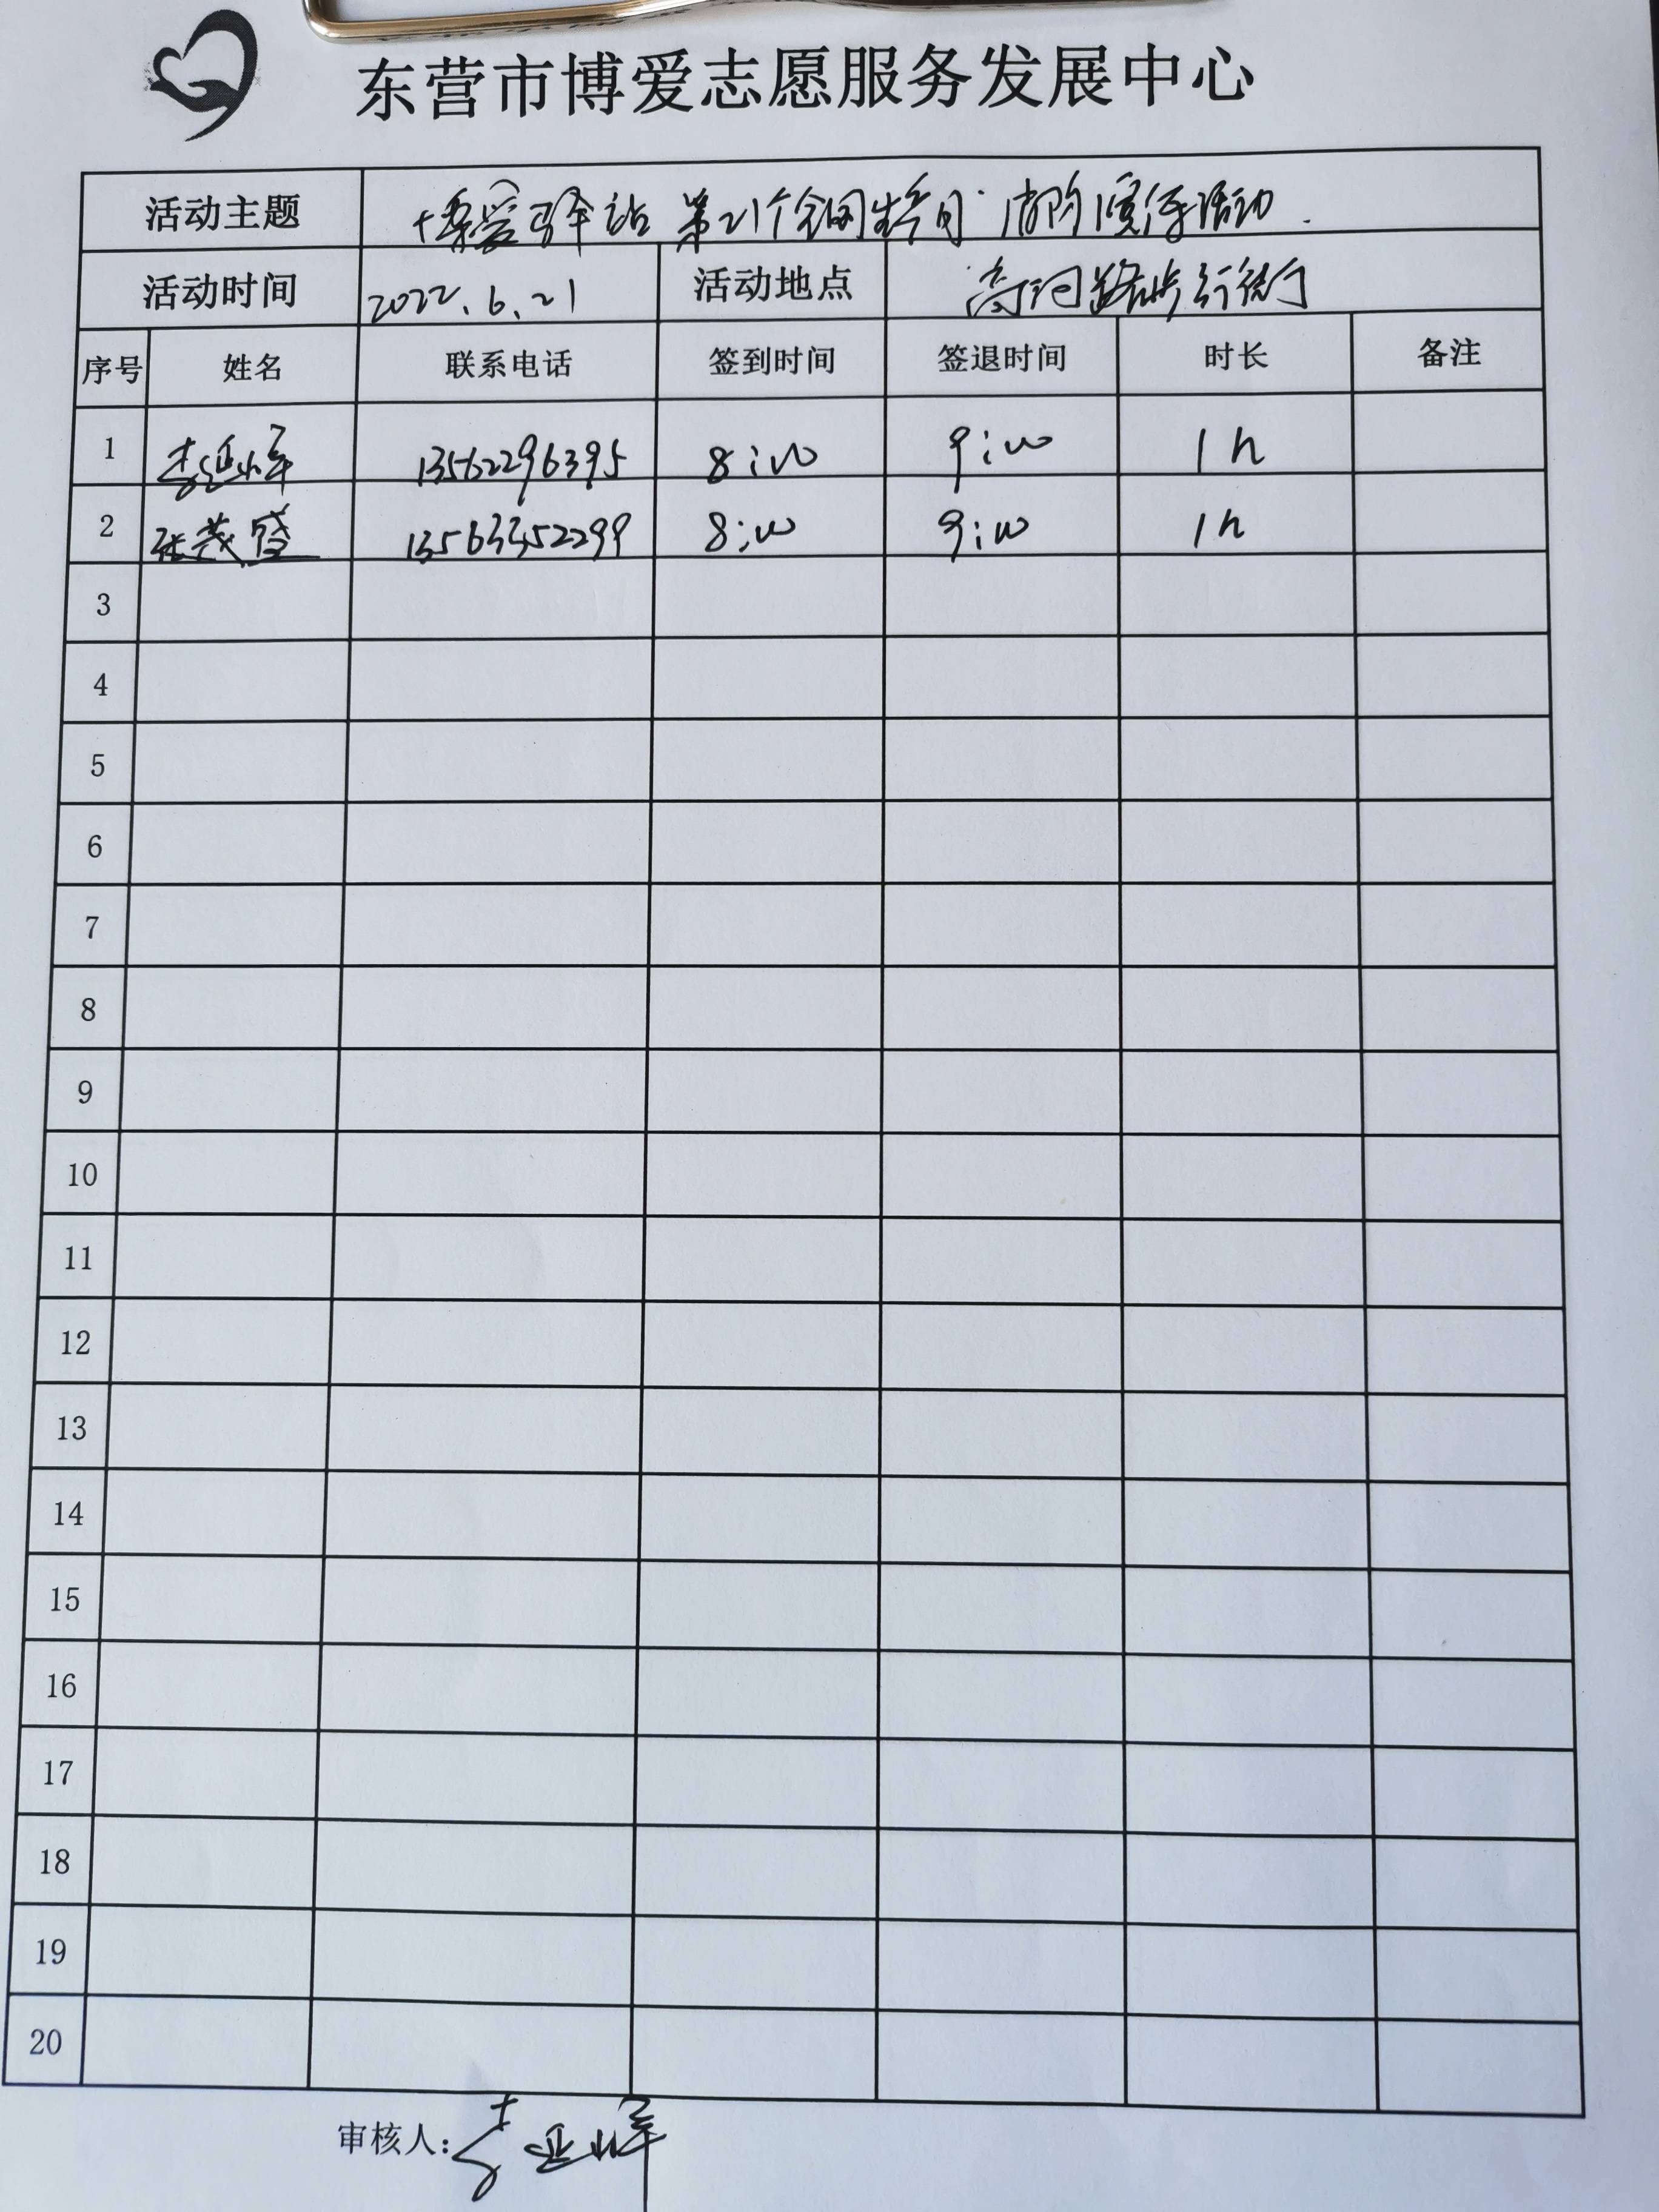 东营市博爱志愿服务发展中心
活动主题 博爱驿站 第21个全国生产月 消防宣传活动.
活动时间 2022.6.21 活动地点 步行街
序号 姓名 联系电话 签到时间 签退时间 时长 备注
1 李亚峰 13562296395 8:00 9:00 1h
2 张茂盛 13563352299 8:00 9:00 1h
3
4
5
6
7
8
9
10
11
12
13
14
15
16
17
18
19
20
审核人: 李亚峰